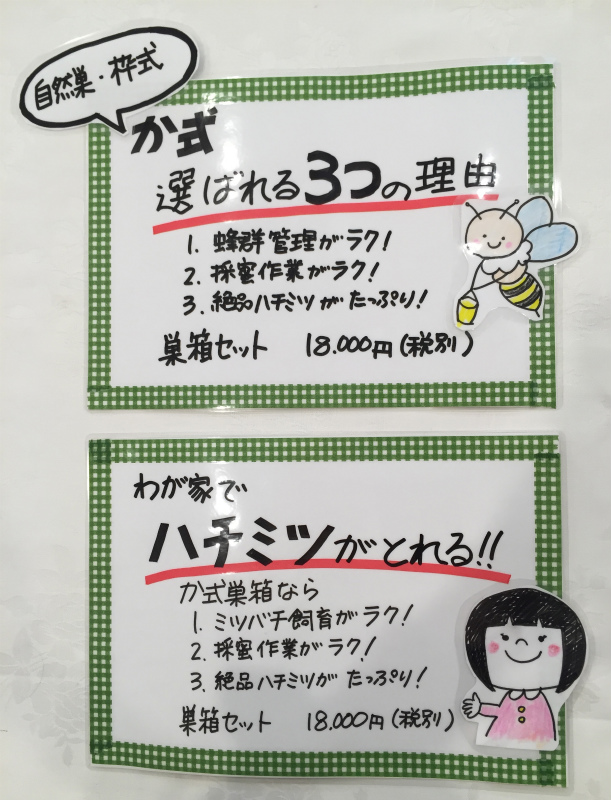 自然巣・枠式
か式
選ばれる3つの理由
1. 蜂群管理がラク!
2. 採蜜作業がラク!
3. 絶品ハチミツがたっぷり!
巣箱セット 18.000円(税別)
わが家で
ハチミツがとれる!!
か式巣箱なら
1. ミツバチ飼育がラク!
2. 採蜜作業がラク!
3. 絶品ハチミツがたっぷり!
巣箱セット 18.000円(税別)